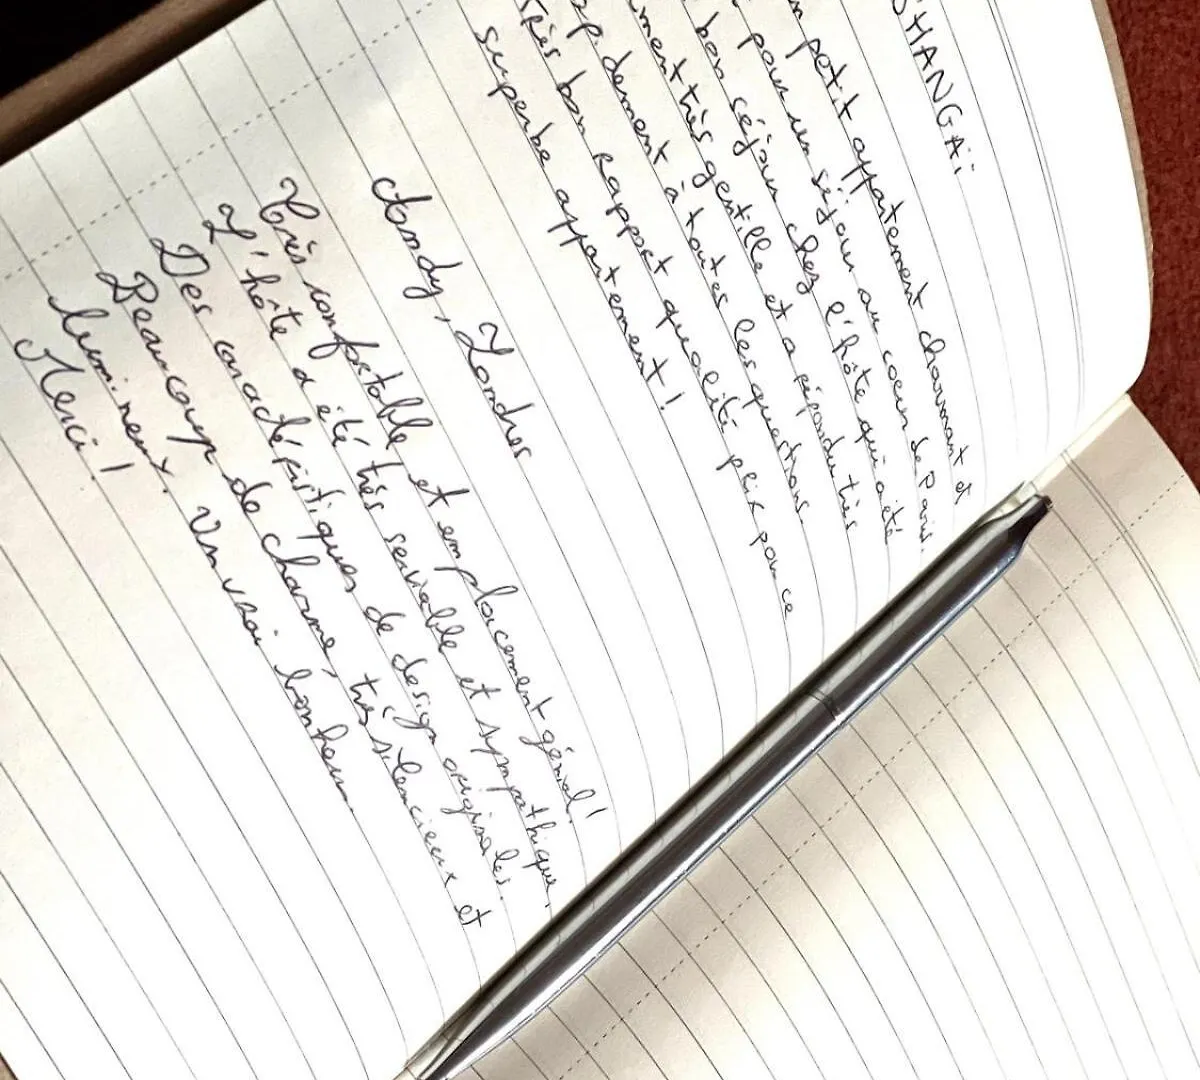 SHANGAii
petit appartement charmant et
pour un séjour au coeur de Paris.
bon séjour chez l'hôte qui a été
très gentille et a répondu très
à toutes les questions.
Très bon rapport qualité prix pour ce
superbe appartement!
Andy, Londres
Très confortable et emplacement génial!
L'hôte a été très serviable et sympathique.
Des caractéristiques de design originales.
Beaucoup de charme, très silencieux et
lumineux. Un vrai bonheur.
Merci!